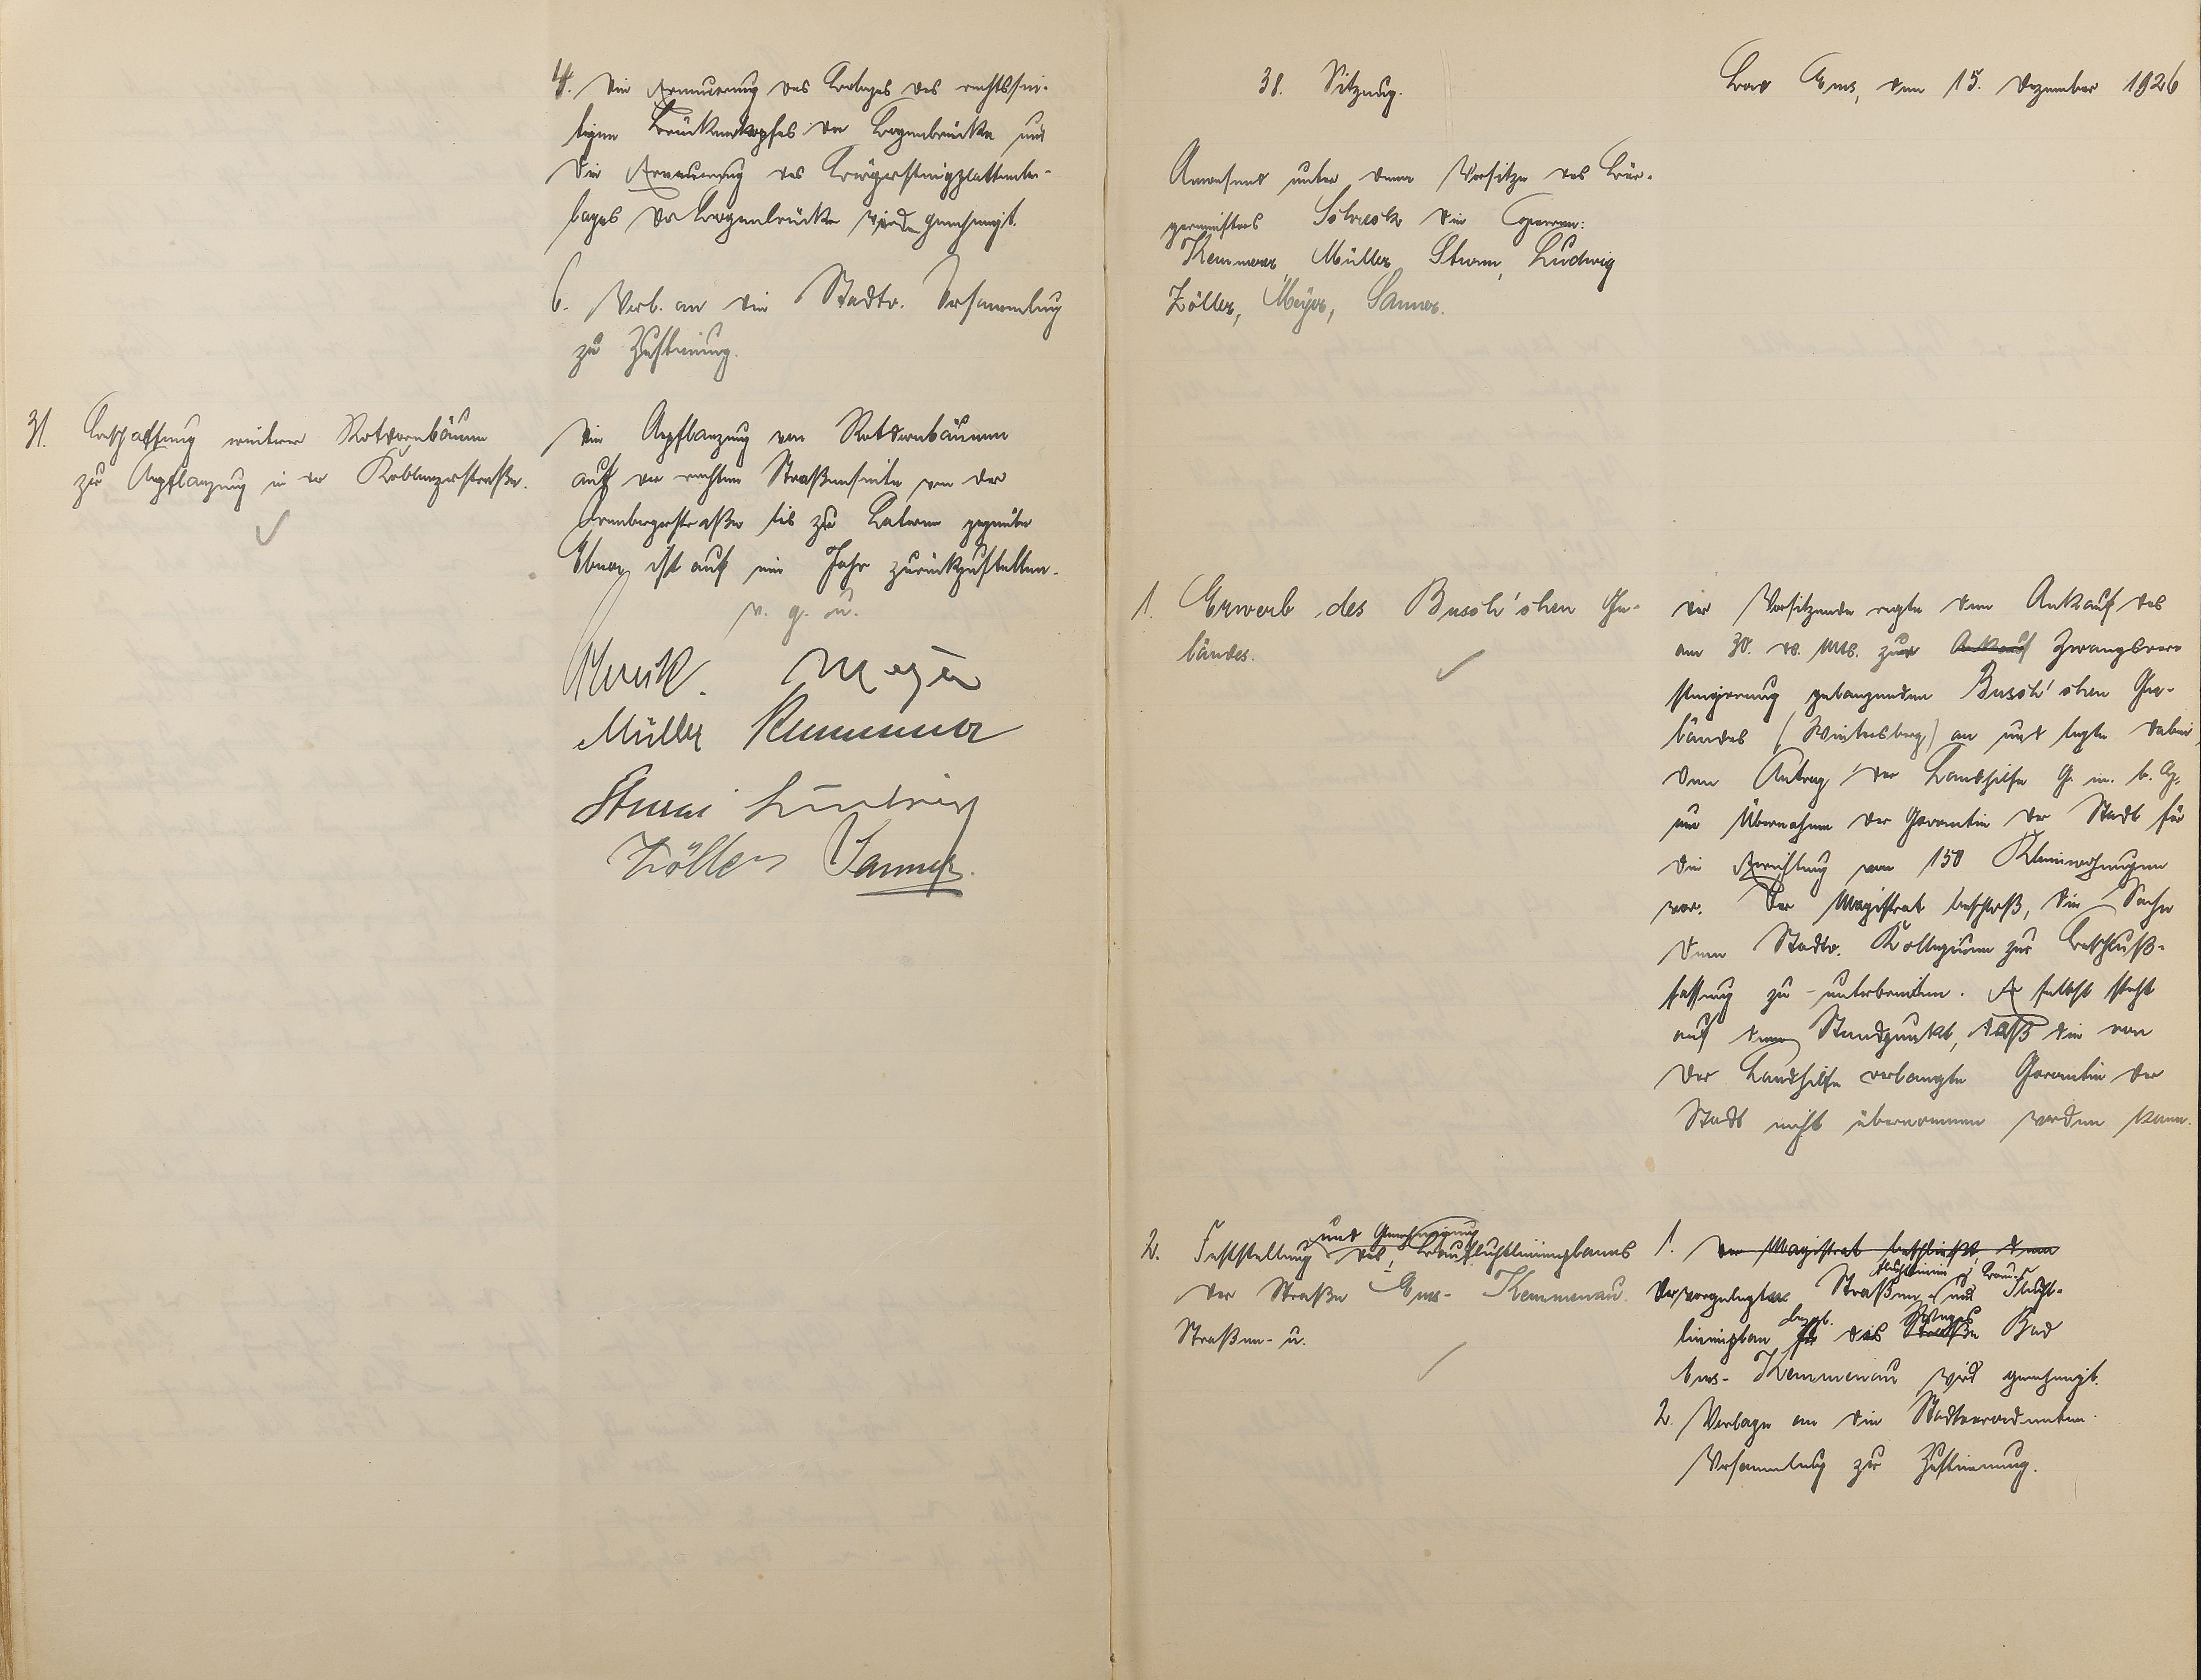 4. Die Erneuerung des Belages des rechtssei-
tigen Brückenkopfes der Bogenbrücke und
die Erneuerung des Bürgersteigplattenbe-
lages der Bogenbrücke wird genehmigt.
6. Vorl. an die Stadtv. Versammlung
zu Zustimmung.
31. Beschaffung weiterer Rotdornbäume
zur Anpflanzung in der Koblenzerstraße.
Die Anpflanzung von Rotdornbäumen
auf der rechten Straßenseite von der
Arenbergerstraße bis zur Laterne gegenüber
ist auf ein Jahr zurückzustellen.
v. g. u.
Schreck. Meyer
Müller Kemmerer
Sturm Ludwig
Zöller Sanner.
38. Sitzung.
Bad Ems, den 15. Dezember 1926
Anwesend unter dem Vorsitze des Bür-
germeisters Schreck die Herren:
Kemmerer, Müller, Sturm, Ludwig
Zöller, Meyer, Sanner.
1. Erwerb des Busch'schen Ge-
bäudes.
Der Vorsitzende regte den Ankauf des
am 30. ds. Mts. zur Ankauf Zwangsver-
steigerung gelangenden Busch'schen Ge-
bäudes (Wintersberg) an und legte dabei
den Antrag der Landhilfe G. m. b. H.
um Übernahme der Garantie der Stadt für
die Errichtung von 150 Kleinwohnungen
vor. Der Magistrat beschloß, die Sache
dem Stadtv. Kollegium zur Beschluß-
fassung zu unterbreiten. Er selbst steht
auf dem Standpunkt, daß die von
der Landhilfe verlangte Garantie der
Stadt nicht übernommen werden kann.
2. Feststellung und Genehmigung des Baufluchtlinienplanes
der Straße Ems- Kemmenau.
Straßen- u.
1. Der Magistrat beschließt, dem
Der vorgelegte Straßenfluchtlinien u. Bau- und Flucht-
linienplan bezgl. für des Weges Straße Bad
Ems- Kemmenau wird genehmigt.
2. Vorlage an die Stadtverordneten-
Versammlung zur Zustimmung.